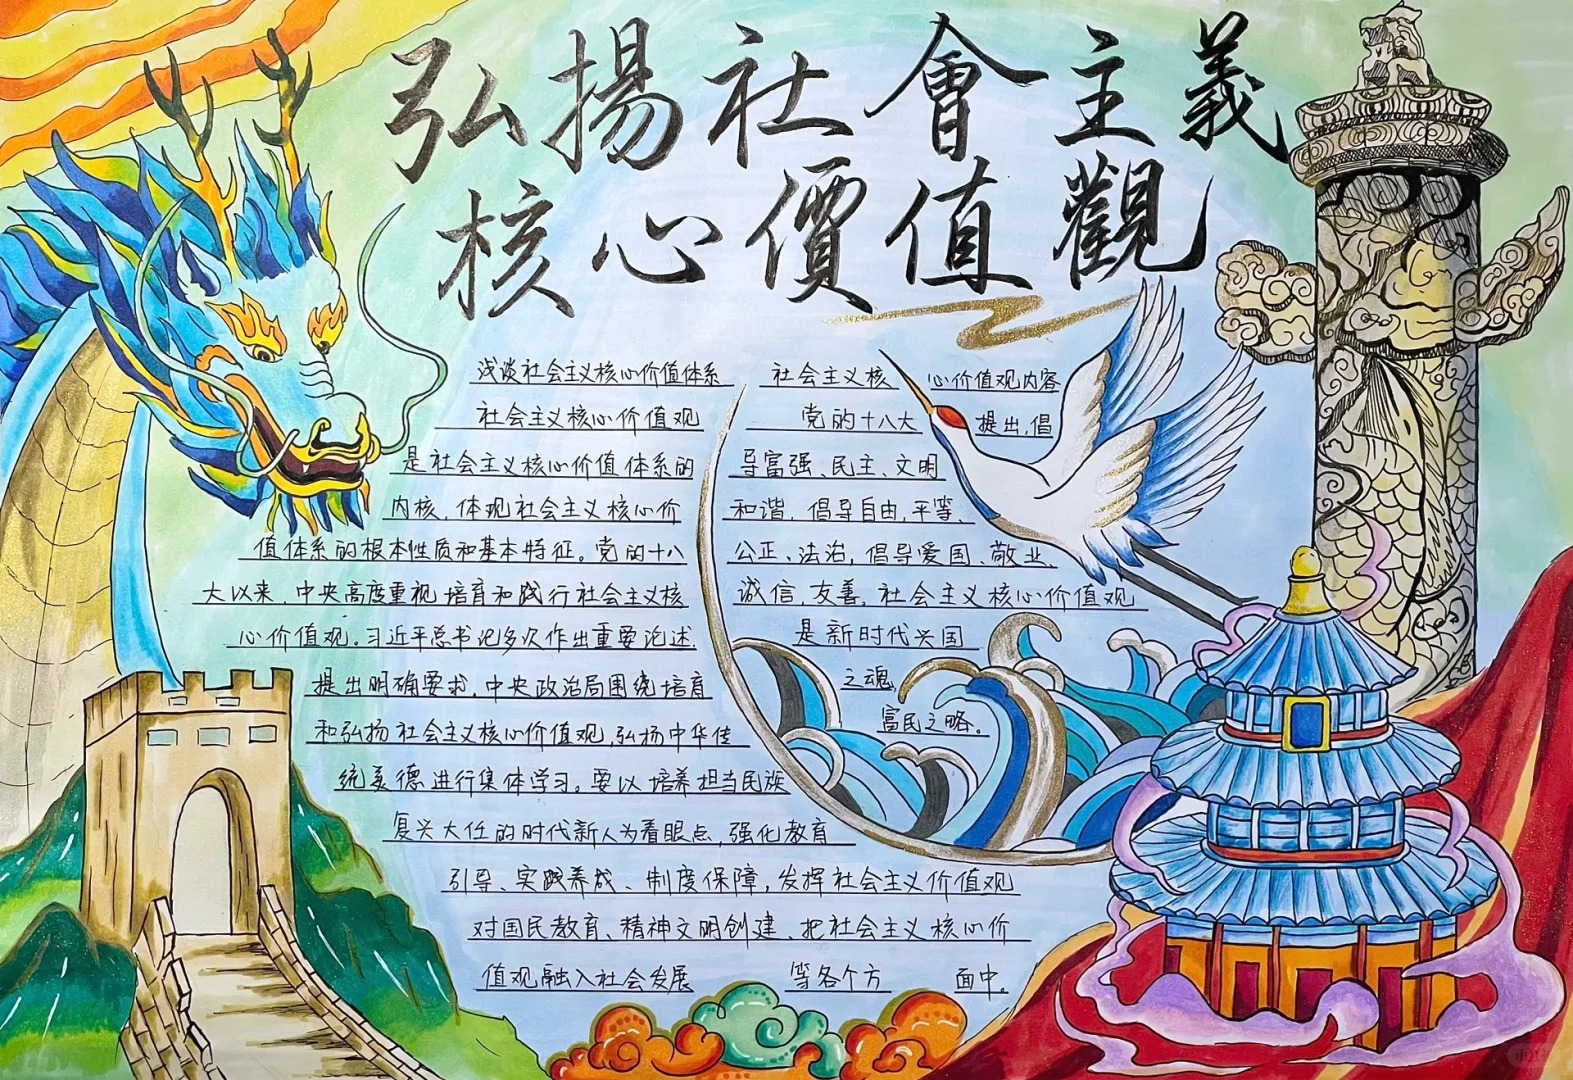 弘揚社會主義
核心價值觀
浅谈社会主义核心价值体系
社会主义核心价值观
是社会主义核心价值体系的
内核，体现社会主义核心价
值体系的根本性质和基本特征。党的十八
大以来，中央高度重视培育和践行社会主义核
心价值观。习近平总书记多次作出重要论述、
提出明确要求，中央政治局围绕培育
和弘扬社会主义核心价值观，弘扬中华传
统美德进行集体学习。要以培养担当民族
复兴大任的时代新人为着眼点，强化教育
引导、实践养成、制度保障，发挥社会主义价值观
对国民教育、精神文明创建、把社会主义核心价
值观融入社会发展 等各个方 面中。
社会主义核 心价值观内容
党的十八大 提出，倡
导富强、民主、文明
和谐，倡导自由，平等、
公正、法治，倡导爱国、敬业、
诚信，友善。社会主义核心价值观
是新时代兴国
之魂，
富民之略。